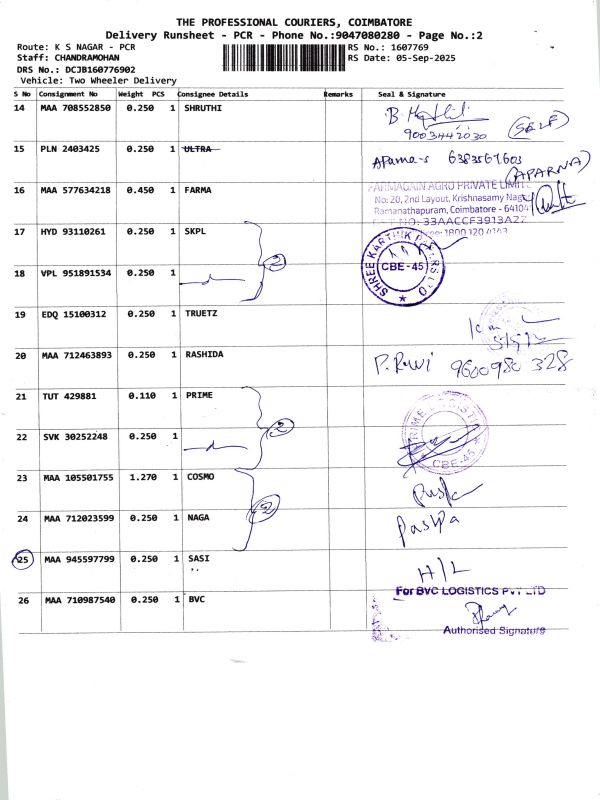 THE PROFESSIONAL COURIERS, COIMBATORE
Delivery Runsheet - PCR - Phone No.:9047080280 - Page No.:2
Route: K S NAGAR - PCR RS No.: 1607769
Staff: CHANDRAMOHAN RS Date: 05-Sep-2025
DRS No.: DCJB160776902
Vehicle: Two Wheeler Delivery
S No Consignment No Weight PCS Consignee Details Remarks Seal & Signature
14 MAA 708552850 0.250 1 SHRUTHI
9003442030 (SELF)
15 PLN 2403425 0.250 1 ULTRA APama-s 6383567603
(APARNA)
16 MAA 577634218 0.450 1 FARMA FARMAGAIN AGRO PRIVATE LIMITE
No: 20, 2nd Layout, Krishnasamy Nag
Ramanathapuram, Coimbatore - 64104
33AACCF3913A2Z
17 HYD 93110261 0.250 1 SKPL
2
SHREE KARTHIK CBE-45
18 VPL 951891534 0.250 1
19 EDQ 15100312 0.250 1 TRUETZ
20 MAA 712463893 0.250 1 RASHIDA P. Ravi 9600980328
21 TUT 429881 0.110 1 PRIME
2
PRIME LOGISTIC CBE-45
22 SVK 30252248 0.250 1
23 MAA 105501755 1.270 1 COSMO
2
24 MAA 712023599 0.250 1 NAGA
25 MAA 945597799 0.250 1 SASI H/L
26 MAA 710987540 0.250 1 BVC For BVC LOGISTICS PVT LTD
Authorised Signature